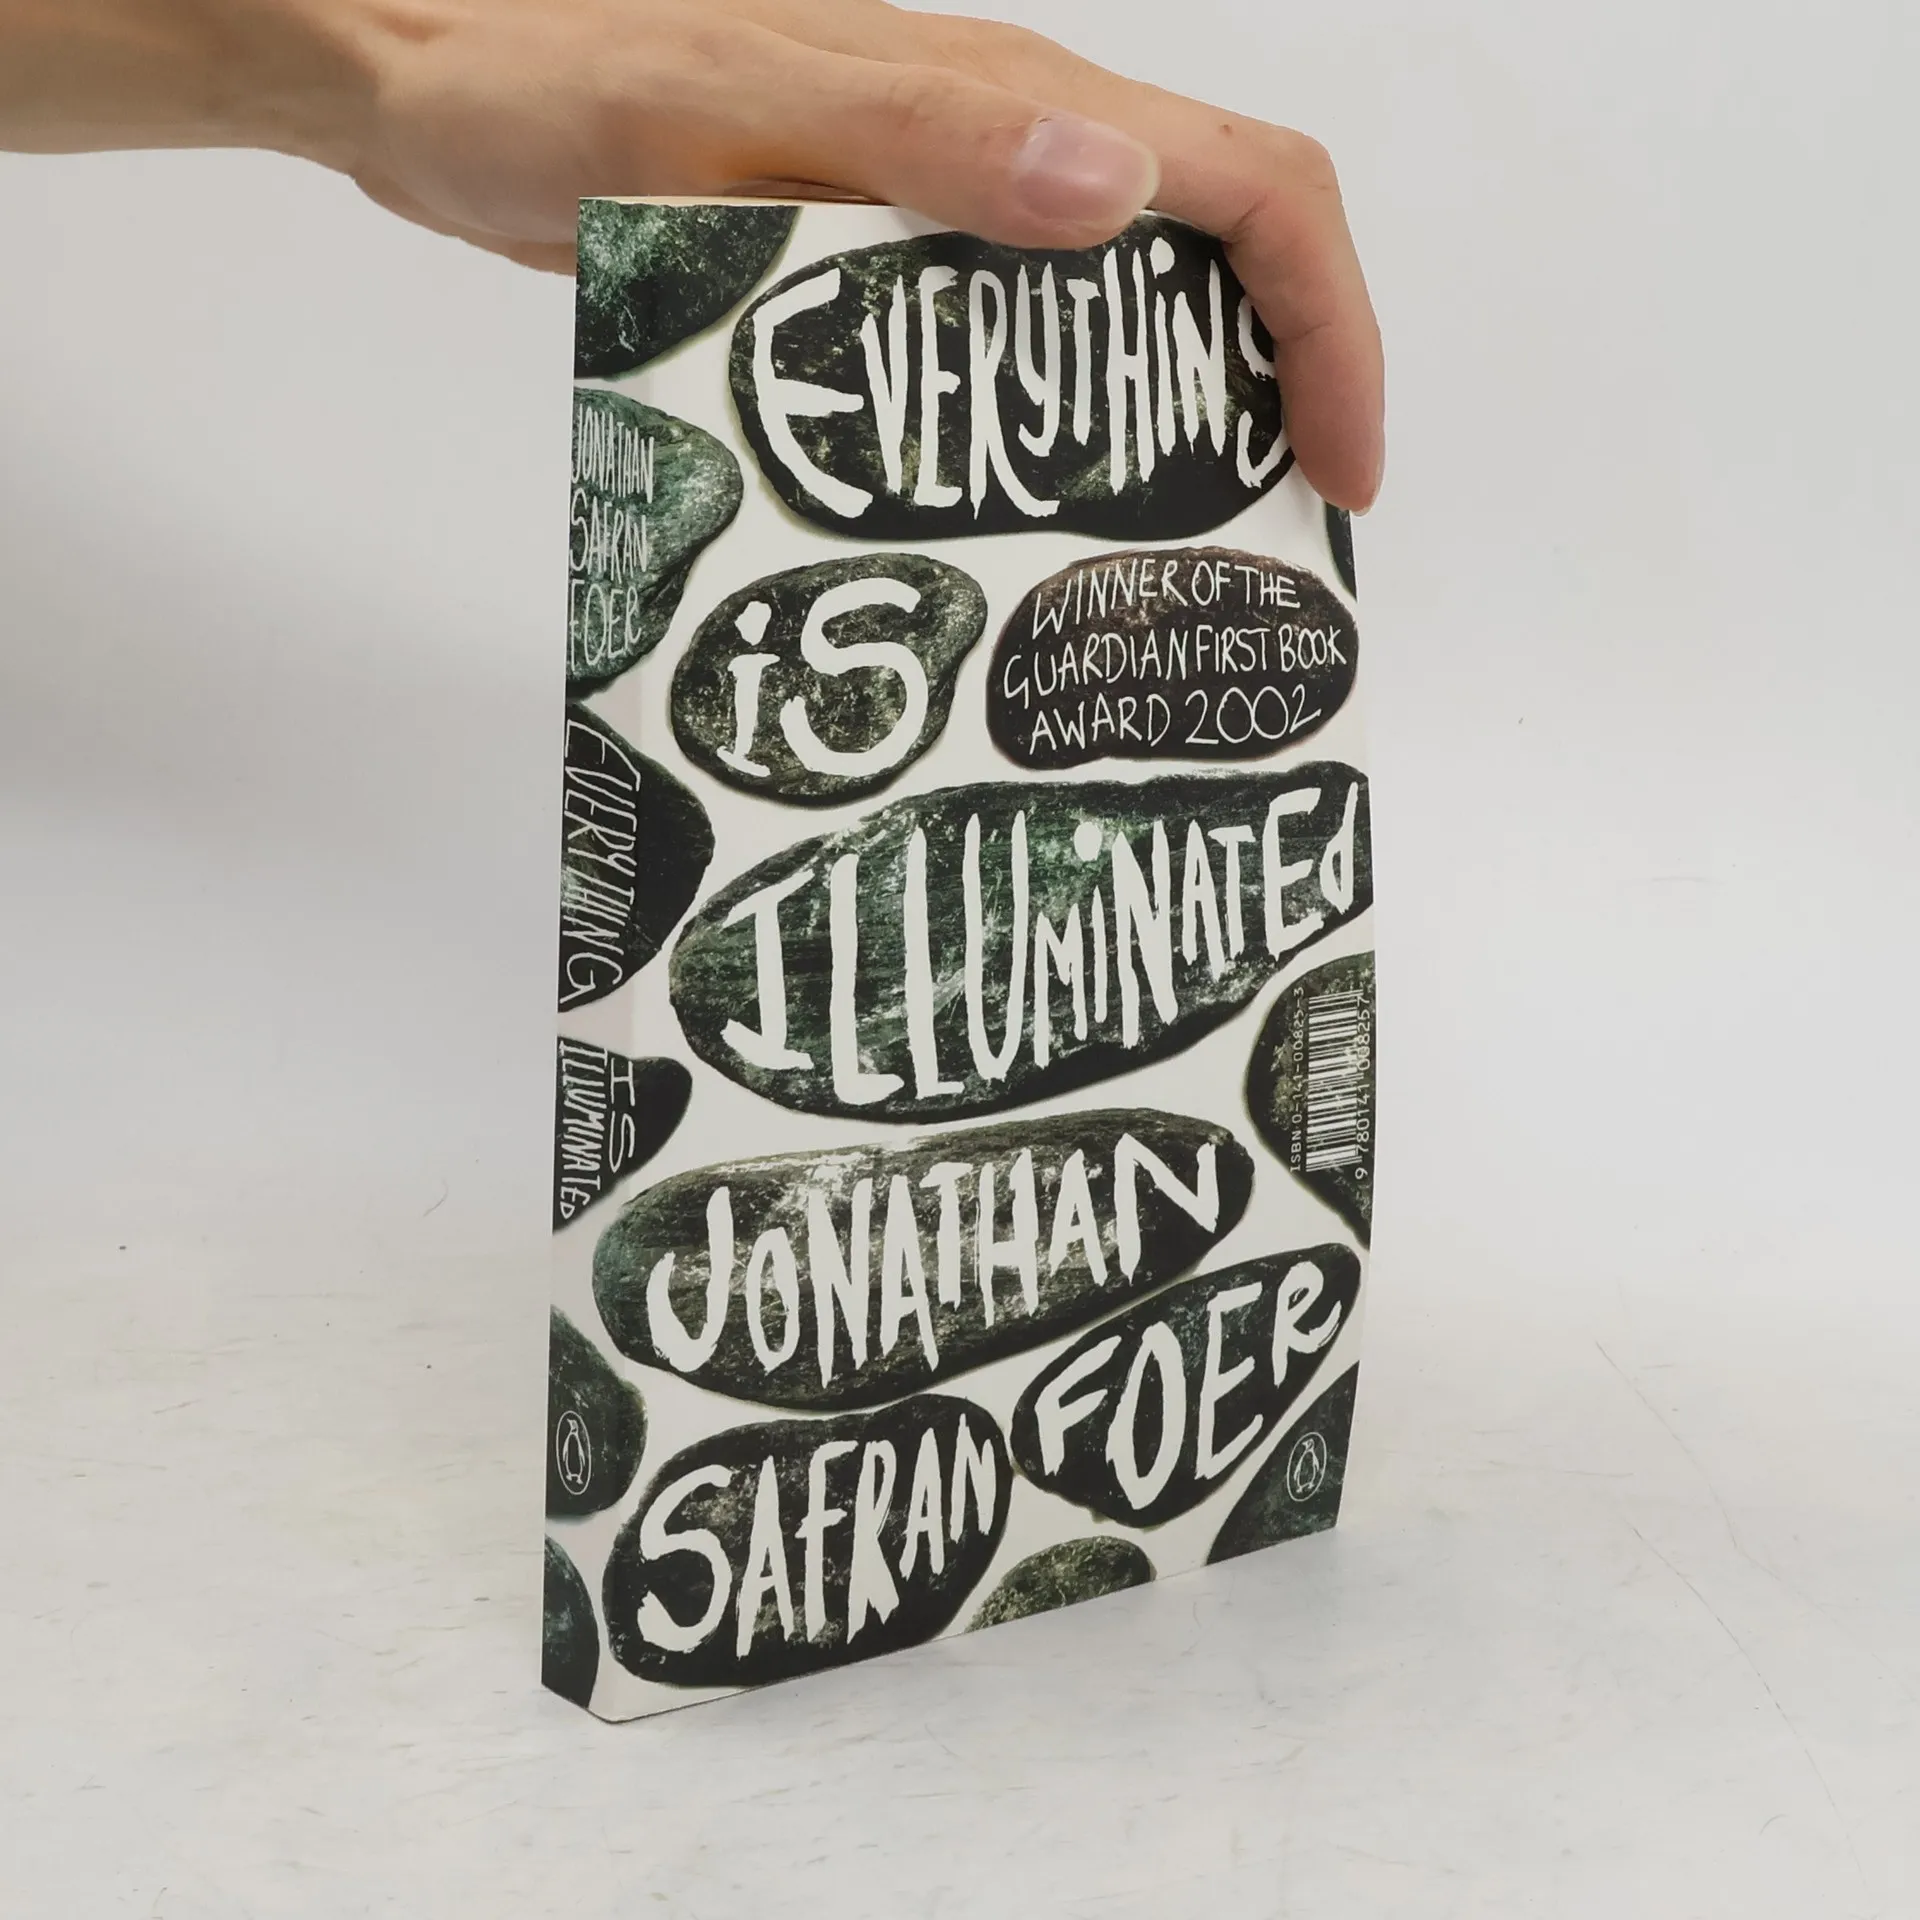 EVERYTHING
iS
WINNER OF THE
GUARDIAN FIRST BOOK
AWARD 2002
ILLUMiNATEd
JONATHAN
SAFRAN
FOER
JONATHAN
SAFRAN
FOER
EVERYTHING
IS
ILLUMINATEd
ISBN 0-141-00825-3
9 780141 008257